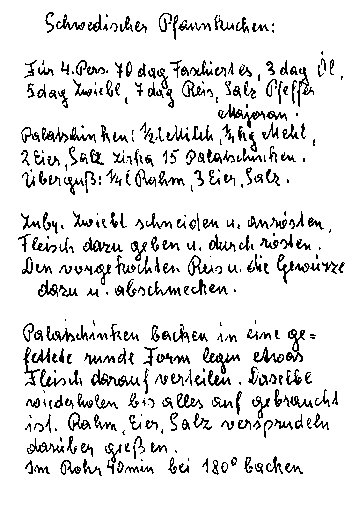 Schwedischer Pfannkuchen:
Für 4 Pers. 70 dag Faschiertes, 3 dag Öl,
5 dag Zwiebl, 7 dag Reis, Salz Pfeffer
Majoran.
Palatschinken: ½ l Milch, ¼ kg Mehl,
2 Eier, Salz zirka 15 Palatschinken.
Überguß: ¼ l Rahm, 3 Eier, Salz.
Zuby. Zwiebl schneiden u. anrösten,
Fleisch dazu geben u. durch rösten.
Den vorgekochten Reis u. die Gewürze
dazu u. abschmecken.
Palatschinken backen in eine ge=
fettete runde Form legen etwas
Fleisch darauf verteilen. Dasselbe
wiederholen bis alles auf gebraucht
ist. Rahm, Eier, Salz versprudeln
darüber gießen.
Im Rohr 40 min bei 180° backen